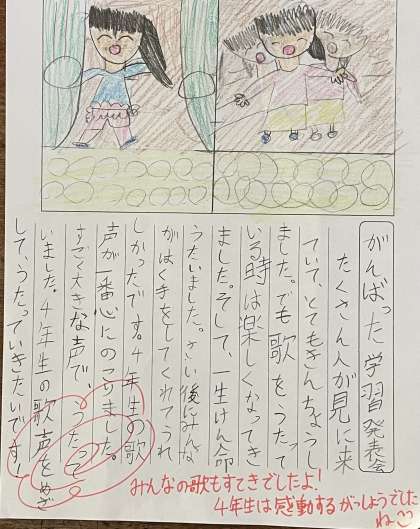 がんばった学習発表会
たくさん人が見に来
ていて、とてもきんちょうし
ました。でも歌をうたって
いる時は楽しくなってき
ました。そして、一生けん命
うたいました。さい後にみんな
がはく手をしてくれてうれ
しかったです。4年生の歌
声が一番心にのこりました。
すごく大きな声で、うたって
いました。4年生の歌声をめざ
して、うたっていきたいです!
みんなの歌もすてきでしたよ!
4年生は感動するがっしょうでした
ね